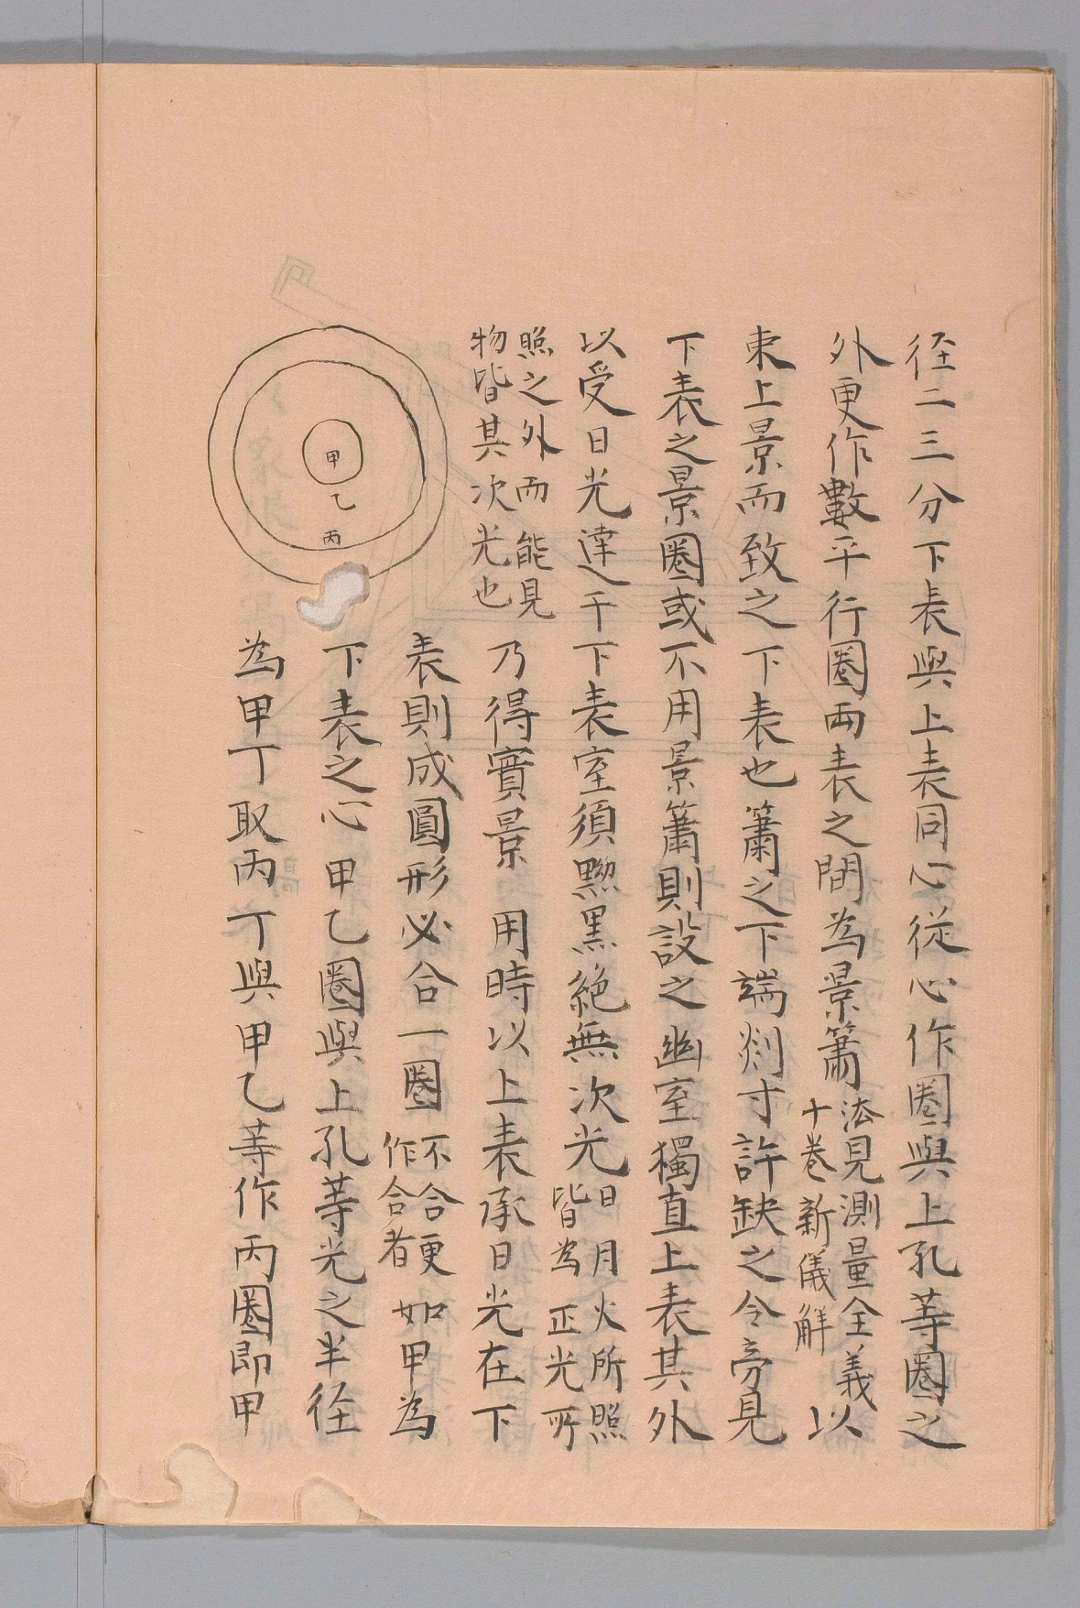 径二三分下表與上表同心從心作圈與上孔等圈之
外更作數平行圈兩表之間為景簫法見測量全義
十卷新儀解以
束上景而致之下表也簫之下端剡寸許缺之令旁見
下表之景圈或不用景簫則設之幽室獨直上表其外
以受日光達于下表室須黝黑絕無次光日月火所照
皆為正光所
照之外而能見
物皆其次光也乃得實景 用時以上表承日光在下
表則成圓形必合一圈不合更
作合者如甲為
下表之心甲乙圈與上孔等光之半径
為甲丁取丙丁與甲乙等作丙圈即甲
甲
乙
丙